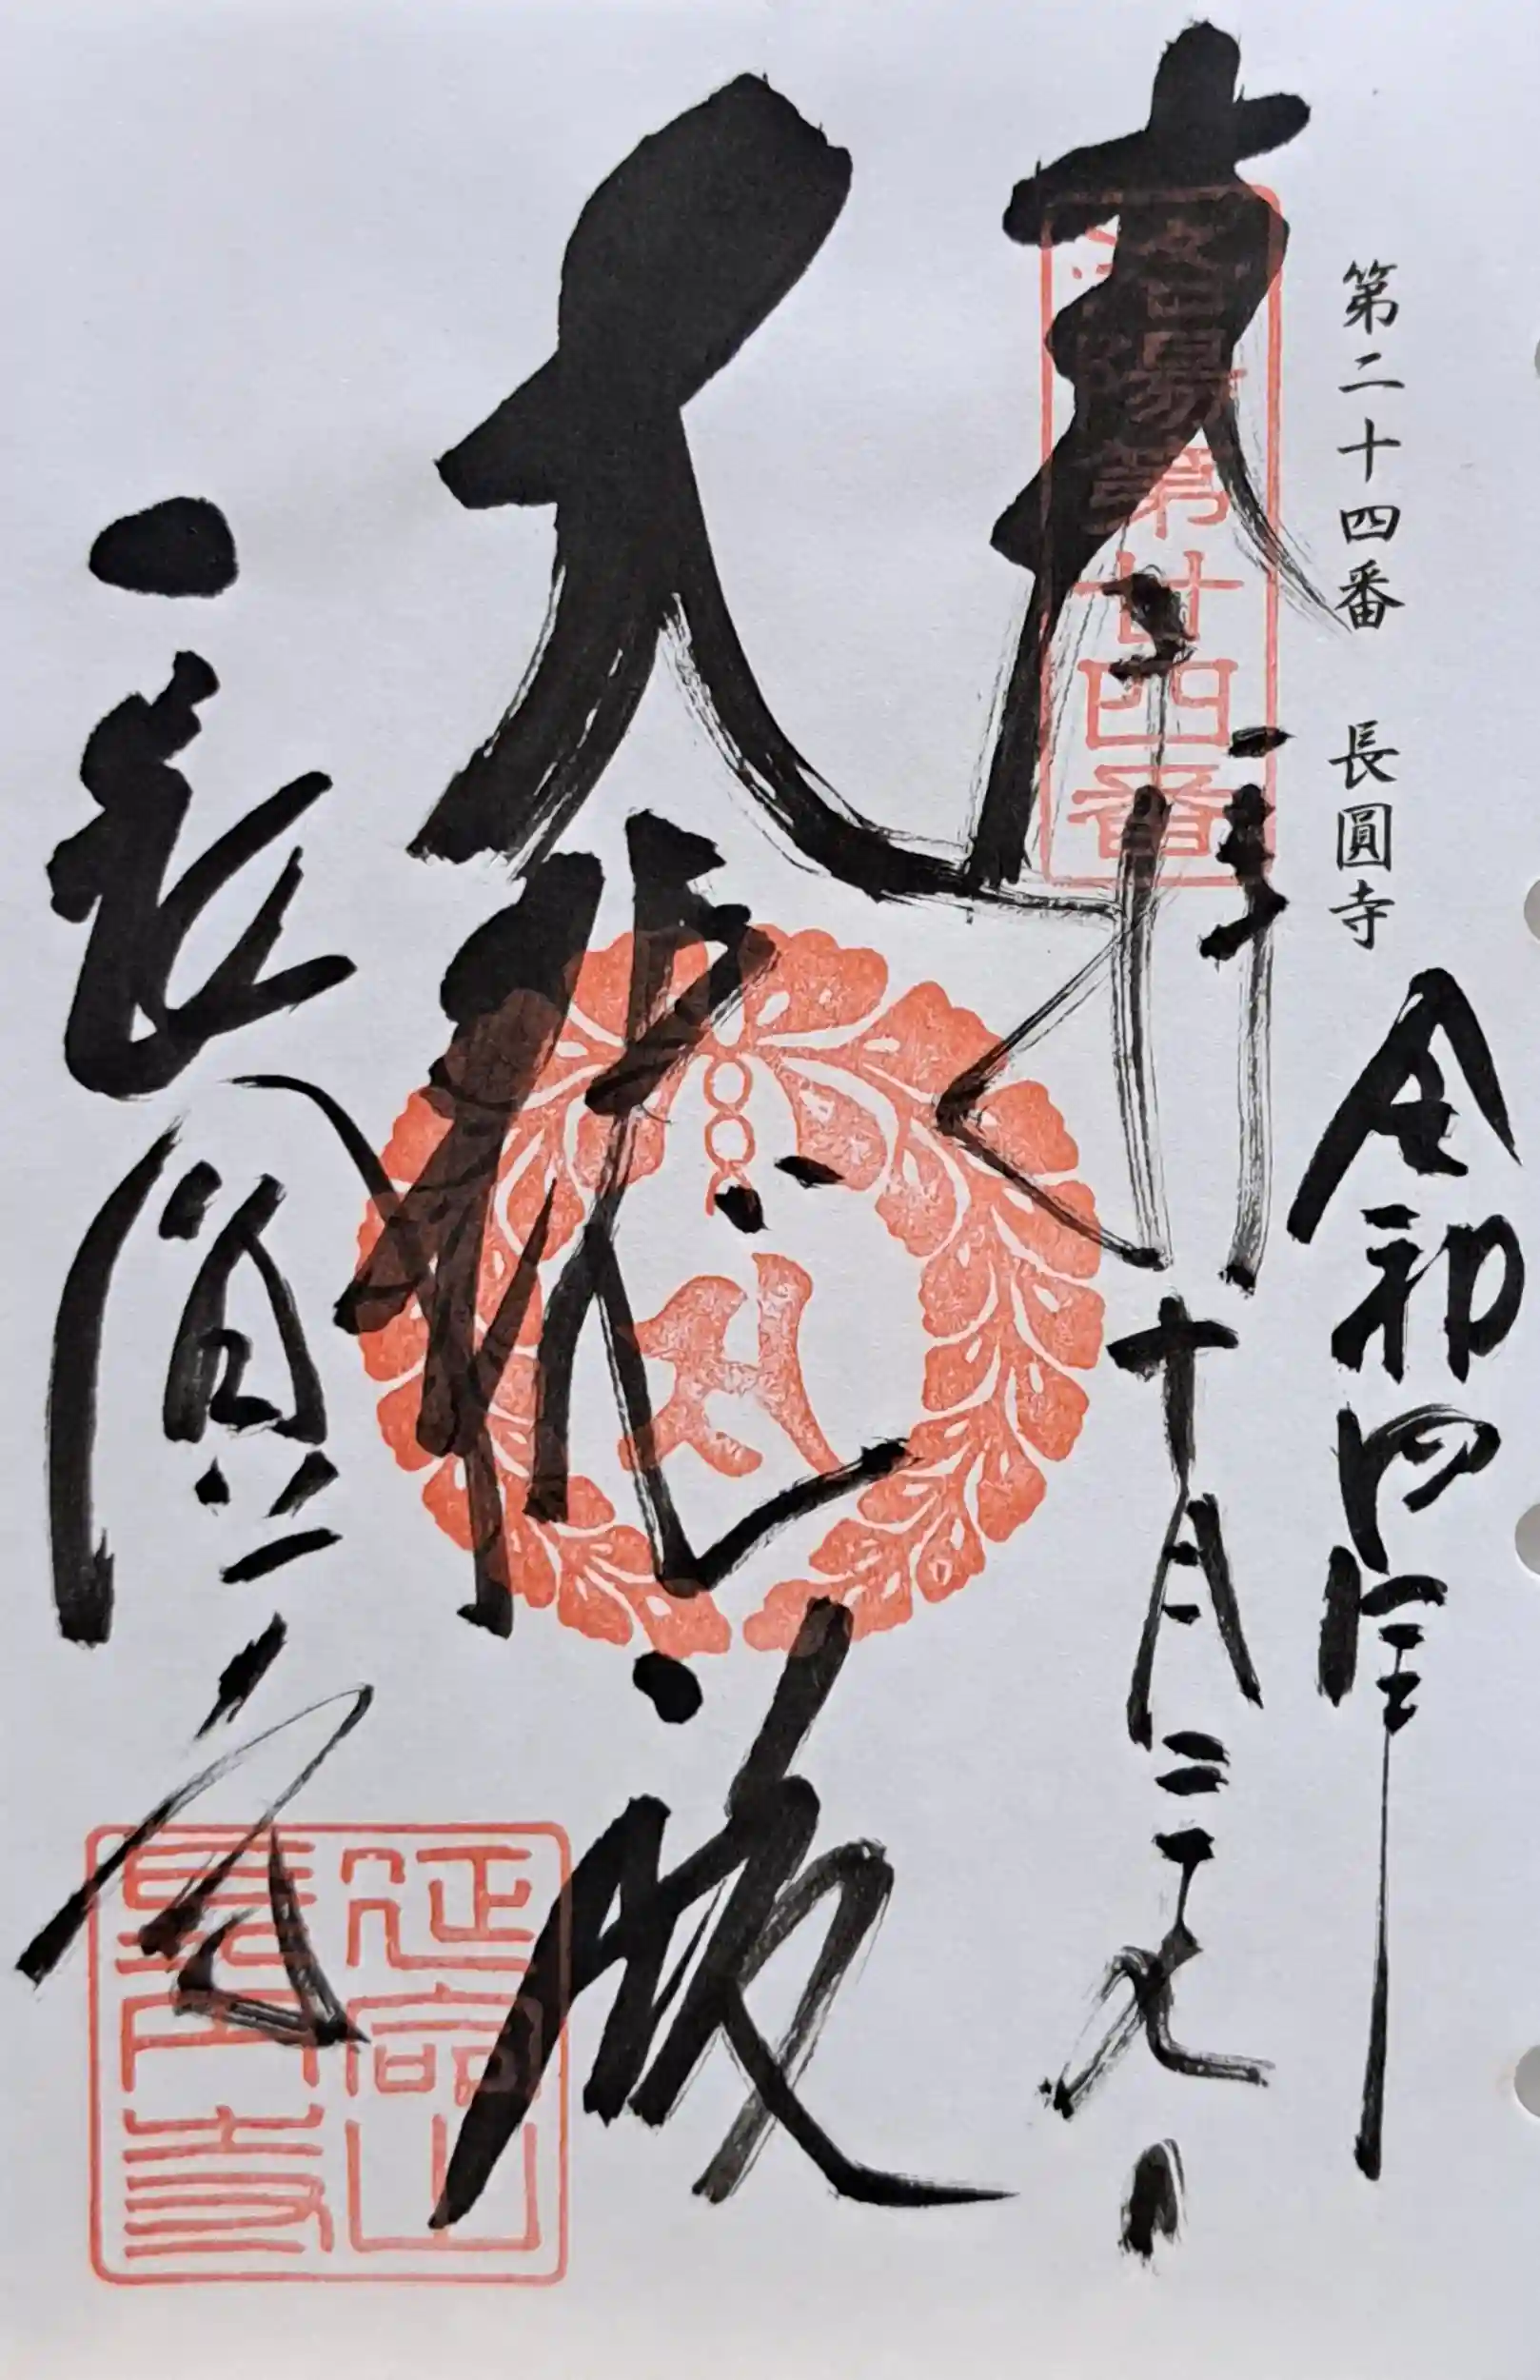 第二十四番　長圓寺
令和四年
奉拝
十月二十九日
洛陽第廿四番
大悲殿
長圓寺
延命山
長円寺